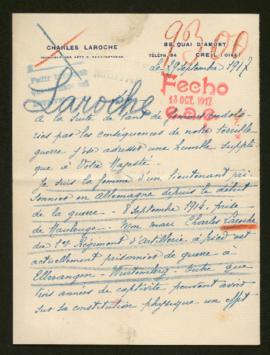 CHARLES LAROCHE
88, QUAI D'AMONT
TÉLÉPH. 94 CREIL (OISE)
le 29 Septembre 1917
9300
Laroche
Fecho
13 OCT. 1917
à la suite de tant de femmes
pas les conséquences de notre terrible
guerre j'ose adresser une humble supplique
à Votre Majesté.
Je suis la femme d'un lieutenant prisonnier
en Allemagne depuis le début
de la guerre - 8 Septembre 1914 - prise
de Maubeuge. Mon mari Charles Laroche
du 1er Régiment d'Artillerie à pied est
actuellement prisonnier de guerre à
Ellwangen - Wurtemberg - Outre que
trois années de captivité peuvent avoir
sur la constitution physique un effet